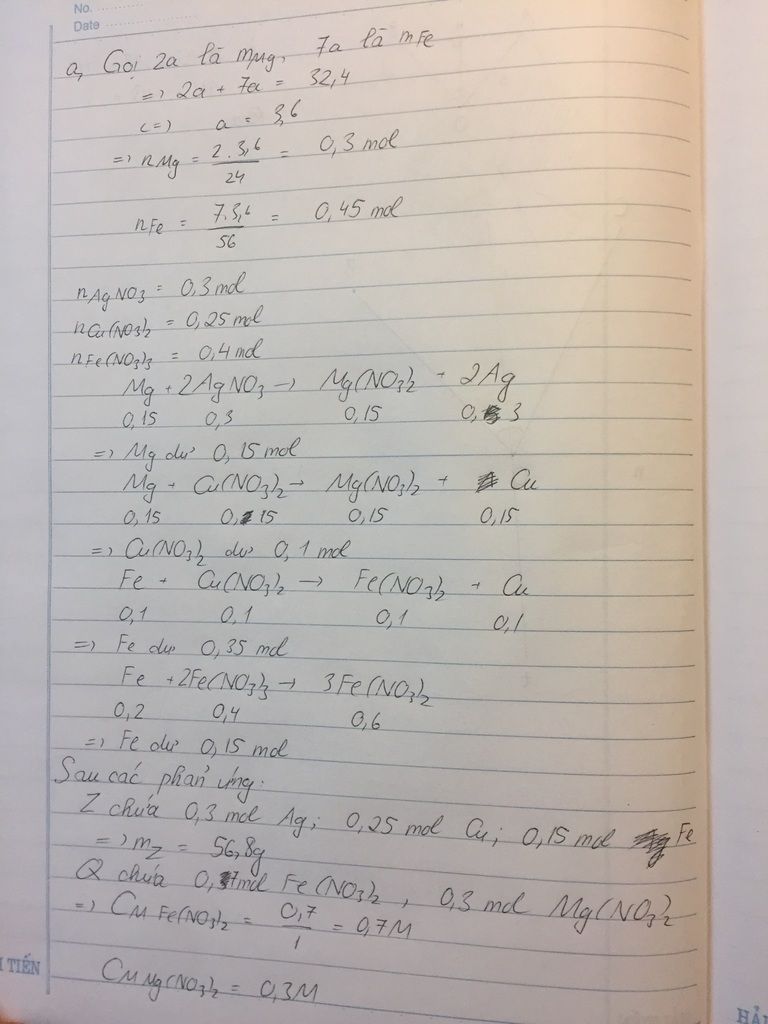 No.
Date
a, Gọi 2a là mMg, 7a là mFe
=> 2a + 7a = 32,4
<=> a = 3,6
=> nMg = 2.3,6/24 = 0,3 mol
nFe = 7.3,6/56 = 0,45 mol
nAgNO3 = 0,3 mol
nCu(NO3)2 = 0,25 mol
nFe(NO3)3 = 0,4 mol
Mg + 2AgNO3 → Mg(NO3)2 + 2Ag
0,15 0,3 0,15 0,3
=> Mg dư 0,15 mol
Mg + Cu(NO3)2 → Mg(NO3)2 + Cu
0,15 0,15 0,15 0,15
=> Cu(NO3)2 dư 0,1 mol
Fe + Cu(NO3)2 → Fe(NO3)2 + Cu
0,1 0,1 0,1 0,1
=> Fe dư 0,35 mol
Fe + 2Fe(NO3)3 → 3Fe(NO3)2
0,2 0,4 0,6
=> Fe dư 0,15 mol
Sau các phản ứng:
Z chứa 0,3 mol Ag; 0,25 mol Cu; 0,15 mol Fe
=> mZ = 56,8g
Q chứa 0,7mol Fe(NO3)2, 0,3 mol Mg(NO3)2
=> CM Fe(NO3)2 = 0,7/1 = 0,7M
CM Mg(NO3)2 = 0,3M
TIẾN